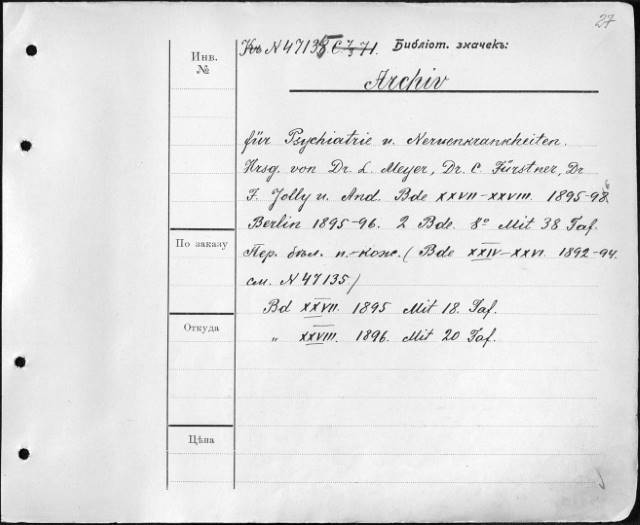 27
Инв.
№
Къ N 47135 С 7/3 71. Библіот. значекъ:
Archiv
für Psychiatrie u. Nervenkrankheiten.
Hrsg. von Dr. L. Meyer, Dr. C. Fürstner, Dr
F. Jolly u. And. Bde XXVII-XXVIII. 1895-96.
Berlin 1895-96. 2 Bde. 8º Mit 38 Taf.
По заказу
Пер. бѣл. п.-кож. (Bde XXIV-XXVI. 1892-94.
см. N 47135)
Bd XXVII. 1895 Mit 18. Taf.
Откуда
„ XXVIII. 1896. Mit 20 Taf.
Цѣна